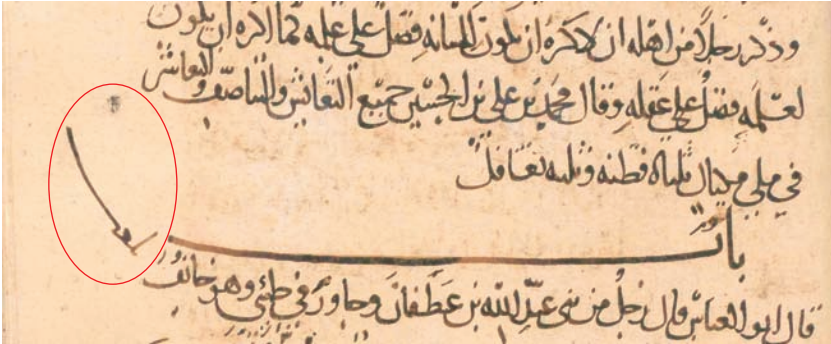 وذكر رجلًا من اهله اني لاكره ان يكون للسانه فضل على علمه كما اكره ان يكون
لعلمه فضلٌ على عقله وقال محمد بن علي بن الحسين جميع التعايش والتناصف والتعاشر
في ملي مكيال ثلثاه فطنه وثلثه تغافل
باب
قال ابو العباس قال رجلٌ من بني عبد الله بن غطفان وجاور في طيئ وهو خائفٌ